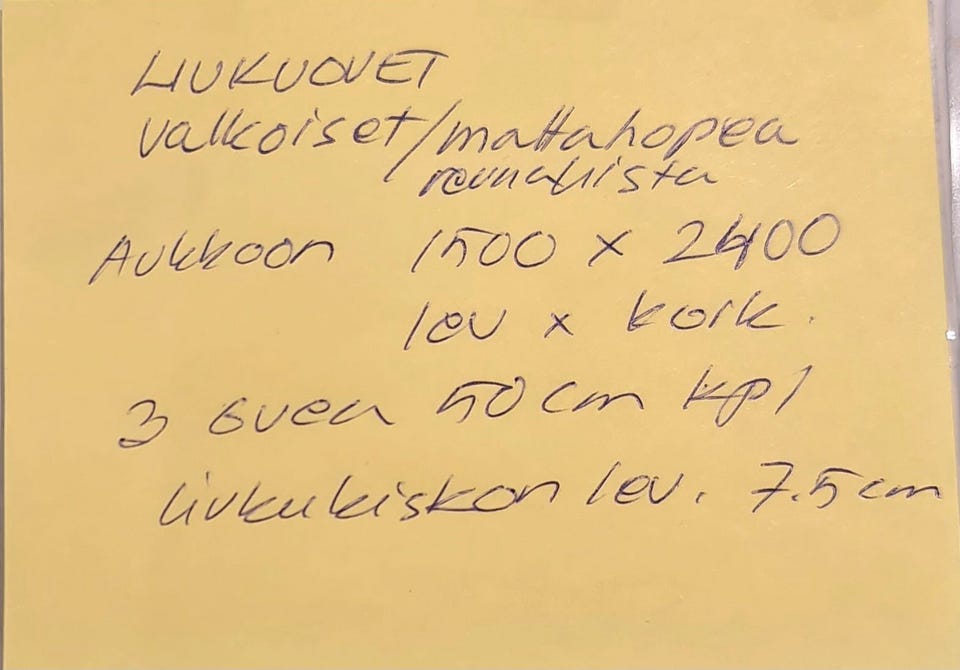 LIUKUOVET
valkoiset/mattahopea
reunalista
Aukkoon 1500 x 2400
lev x kork.
3 ovea 50 cm kpl
liukukiskon lev. 7.5 cm